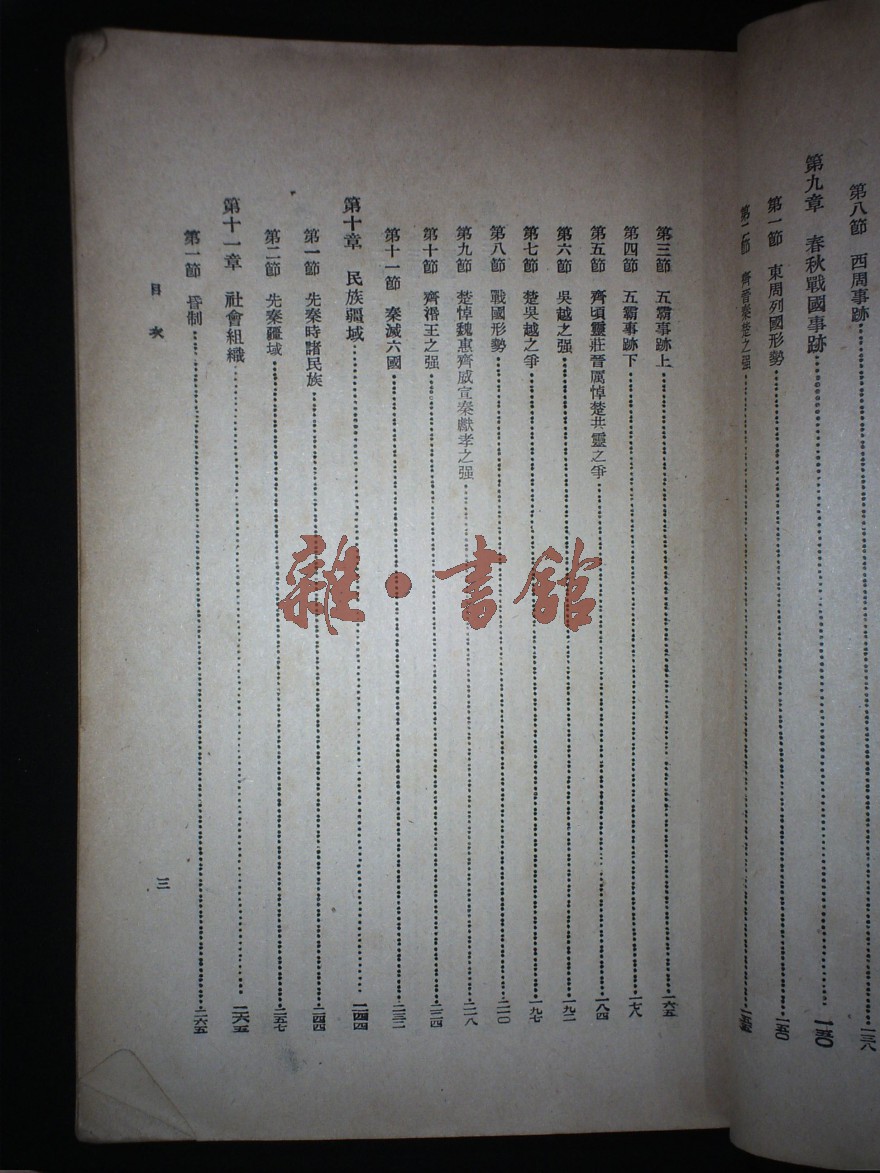 第八節 西周事跡 一三八
第九章 春秋戰國事跡 一五〇
第一節 東周列國形勢 一五〇
第二節 齊晉秦楚之强 一五五
第三節 五霸事跡上 一六五
第四節 五霸事跡下 一七八
第五節 齊頃靈莊晉厲悼楚共靈之爭 一八四
第六節 吳越之强 一九二
第七節 楚吳越之爭 一九七
第八節 戰國形勢 二一〇
第九節 楚悼魏惠齊威宣秦獻孝之强 二一八
第十節 齊湣王之强 二二四
第十一節 秦滅六國 二三二
第十章 民族疆域 二四四
第一節 先秦時諸民族 二四四
第二節 先秦疆域 二五七
第十一章 社會組織 二六五
第一節 昏制 二六五
目次 三
雜·書館